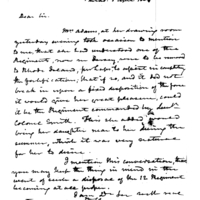 Dear Sir.
Mrs Adams, at her drawing room
yesterday evening took occasion to mention
to me, that she had understood one of the
Regiments now in Jersey were to be moved
to Rhode Island, for help to repair or complete
the fortifications; that if so, and it did not
break in upon a fixed disposition of the force
it would give her great pleasure, could
it be the Regiment commanded by Lieut.
Colonel Smith. She added
her daughter near to her during the
summer, which it was very natural
for her to desire.
I mention this conversation, that
you may have the thing in mind in the
event of such a disposal of the 12 Regiment
becoming at all proper.
I am Dear Sir with